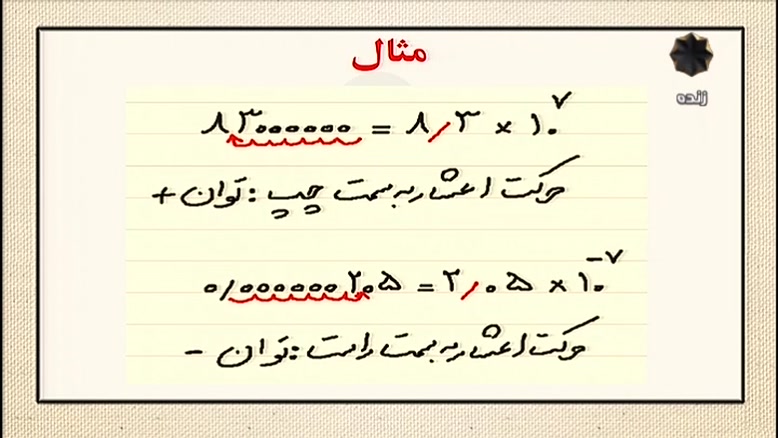 مثال
زنده
۸۳۰۰۰۰۰۰ = ۸/۳ × ۱۰^۷
حرکت اعشار به سمت چپ : توان +
۰/۰۰۰۰۰۰۲۰۵ = ۲/۰۵ × ۱۰^-۷
حرکت اعشار به سمت راست : توان -